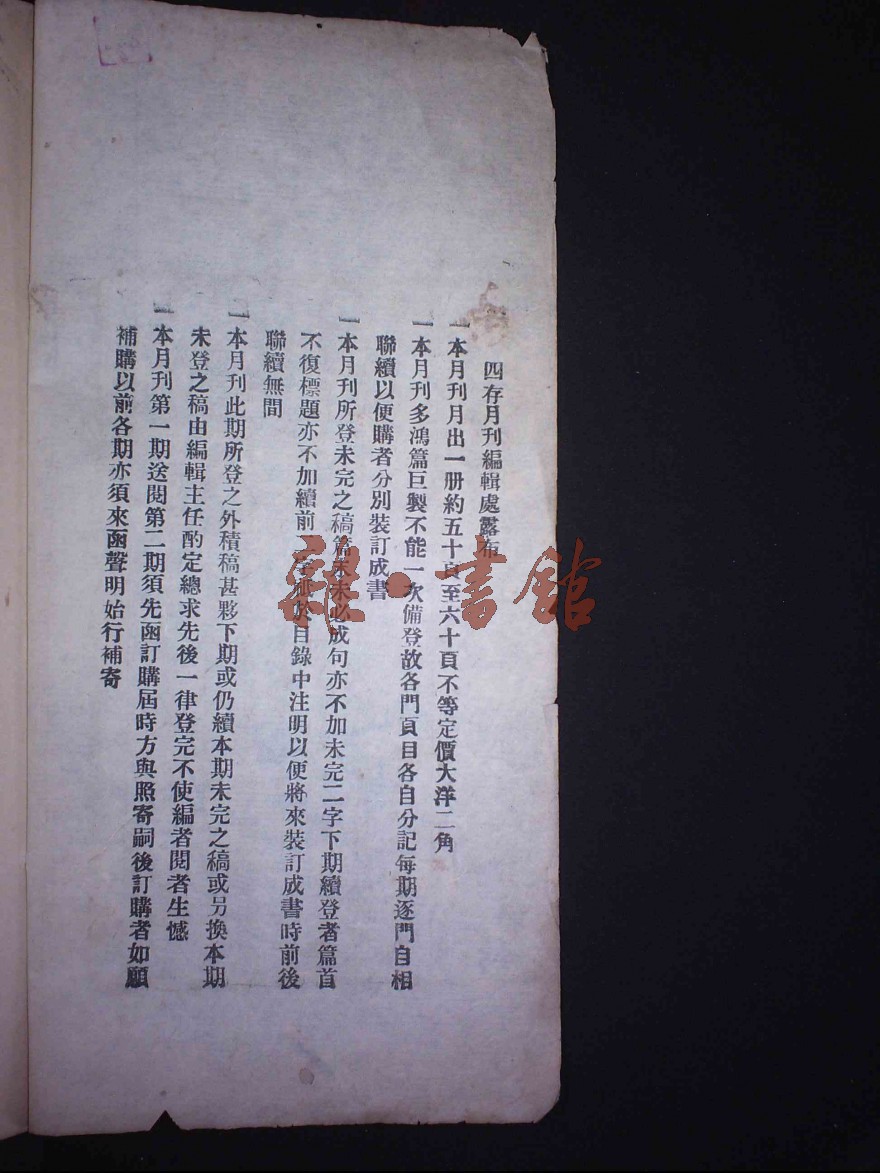 四存月刊編輯處露布
一本月刊月出一册約五十頁至六十頁不等定價大洋二角
一本月刊多鴻篇巨製不能一次備登故各門頁目各自分記每期逐門自相
聯續以便購者分別裝訂成書
一本月刊所登未完之稿篇末未必成句亦不加未完二字下期續登者篇首
不復標題亦不加續前 於目錄中注明以便將來裝訂成書時前後
聯續無間
一本月刊此期所登之外積稿甚夥下期或仍續本期未完之稿或另換本期
未登之稿由編輯主任酌定總求先後一律登完不使編者閱者生憾
一本月刊第一期送閱第二期須先函訂購屆時方與照寄嗣後訂購者如願
補購以前各期亦須來函聲明始行補寄
雜·書館